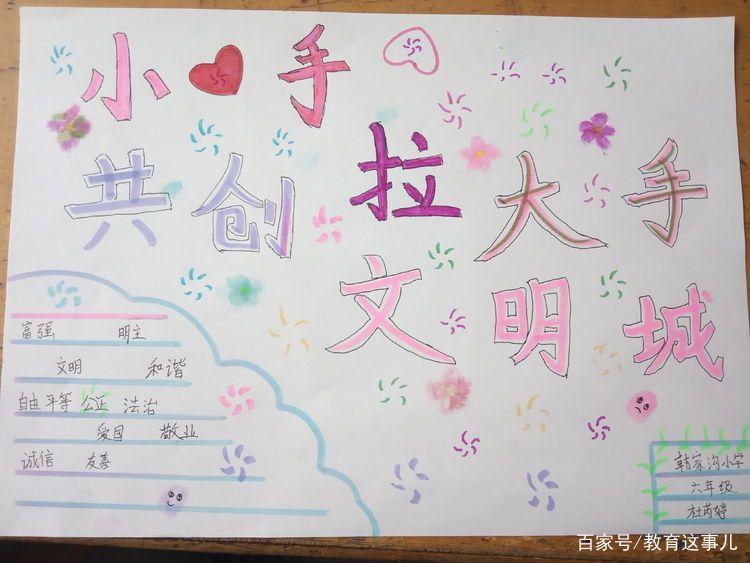 小手
拉大手
共创
文明城
富强 明主
文明 和谐
自由 平等 公正 法治
爱国 敬业
诚信 友善
韩家沟小学
六年级
杜芮婷
百家号/教育这事儿